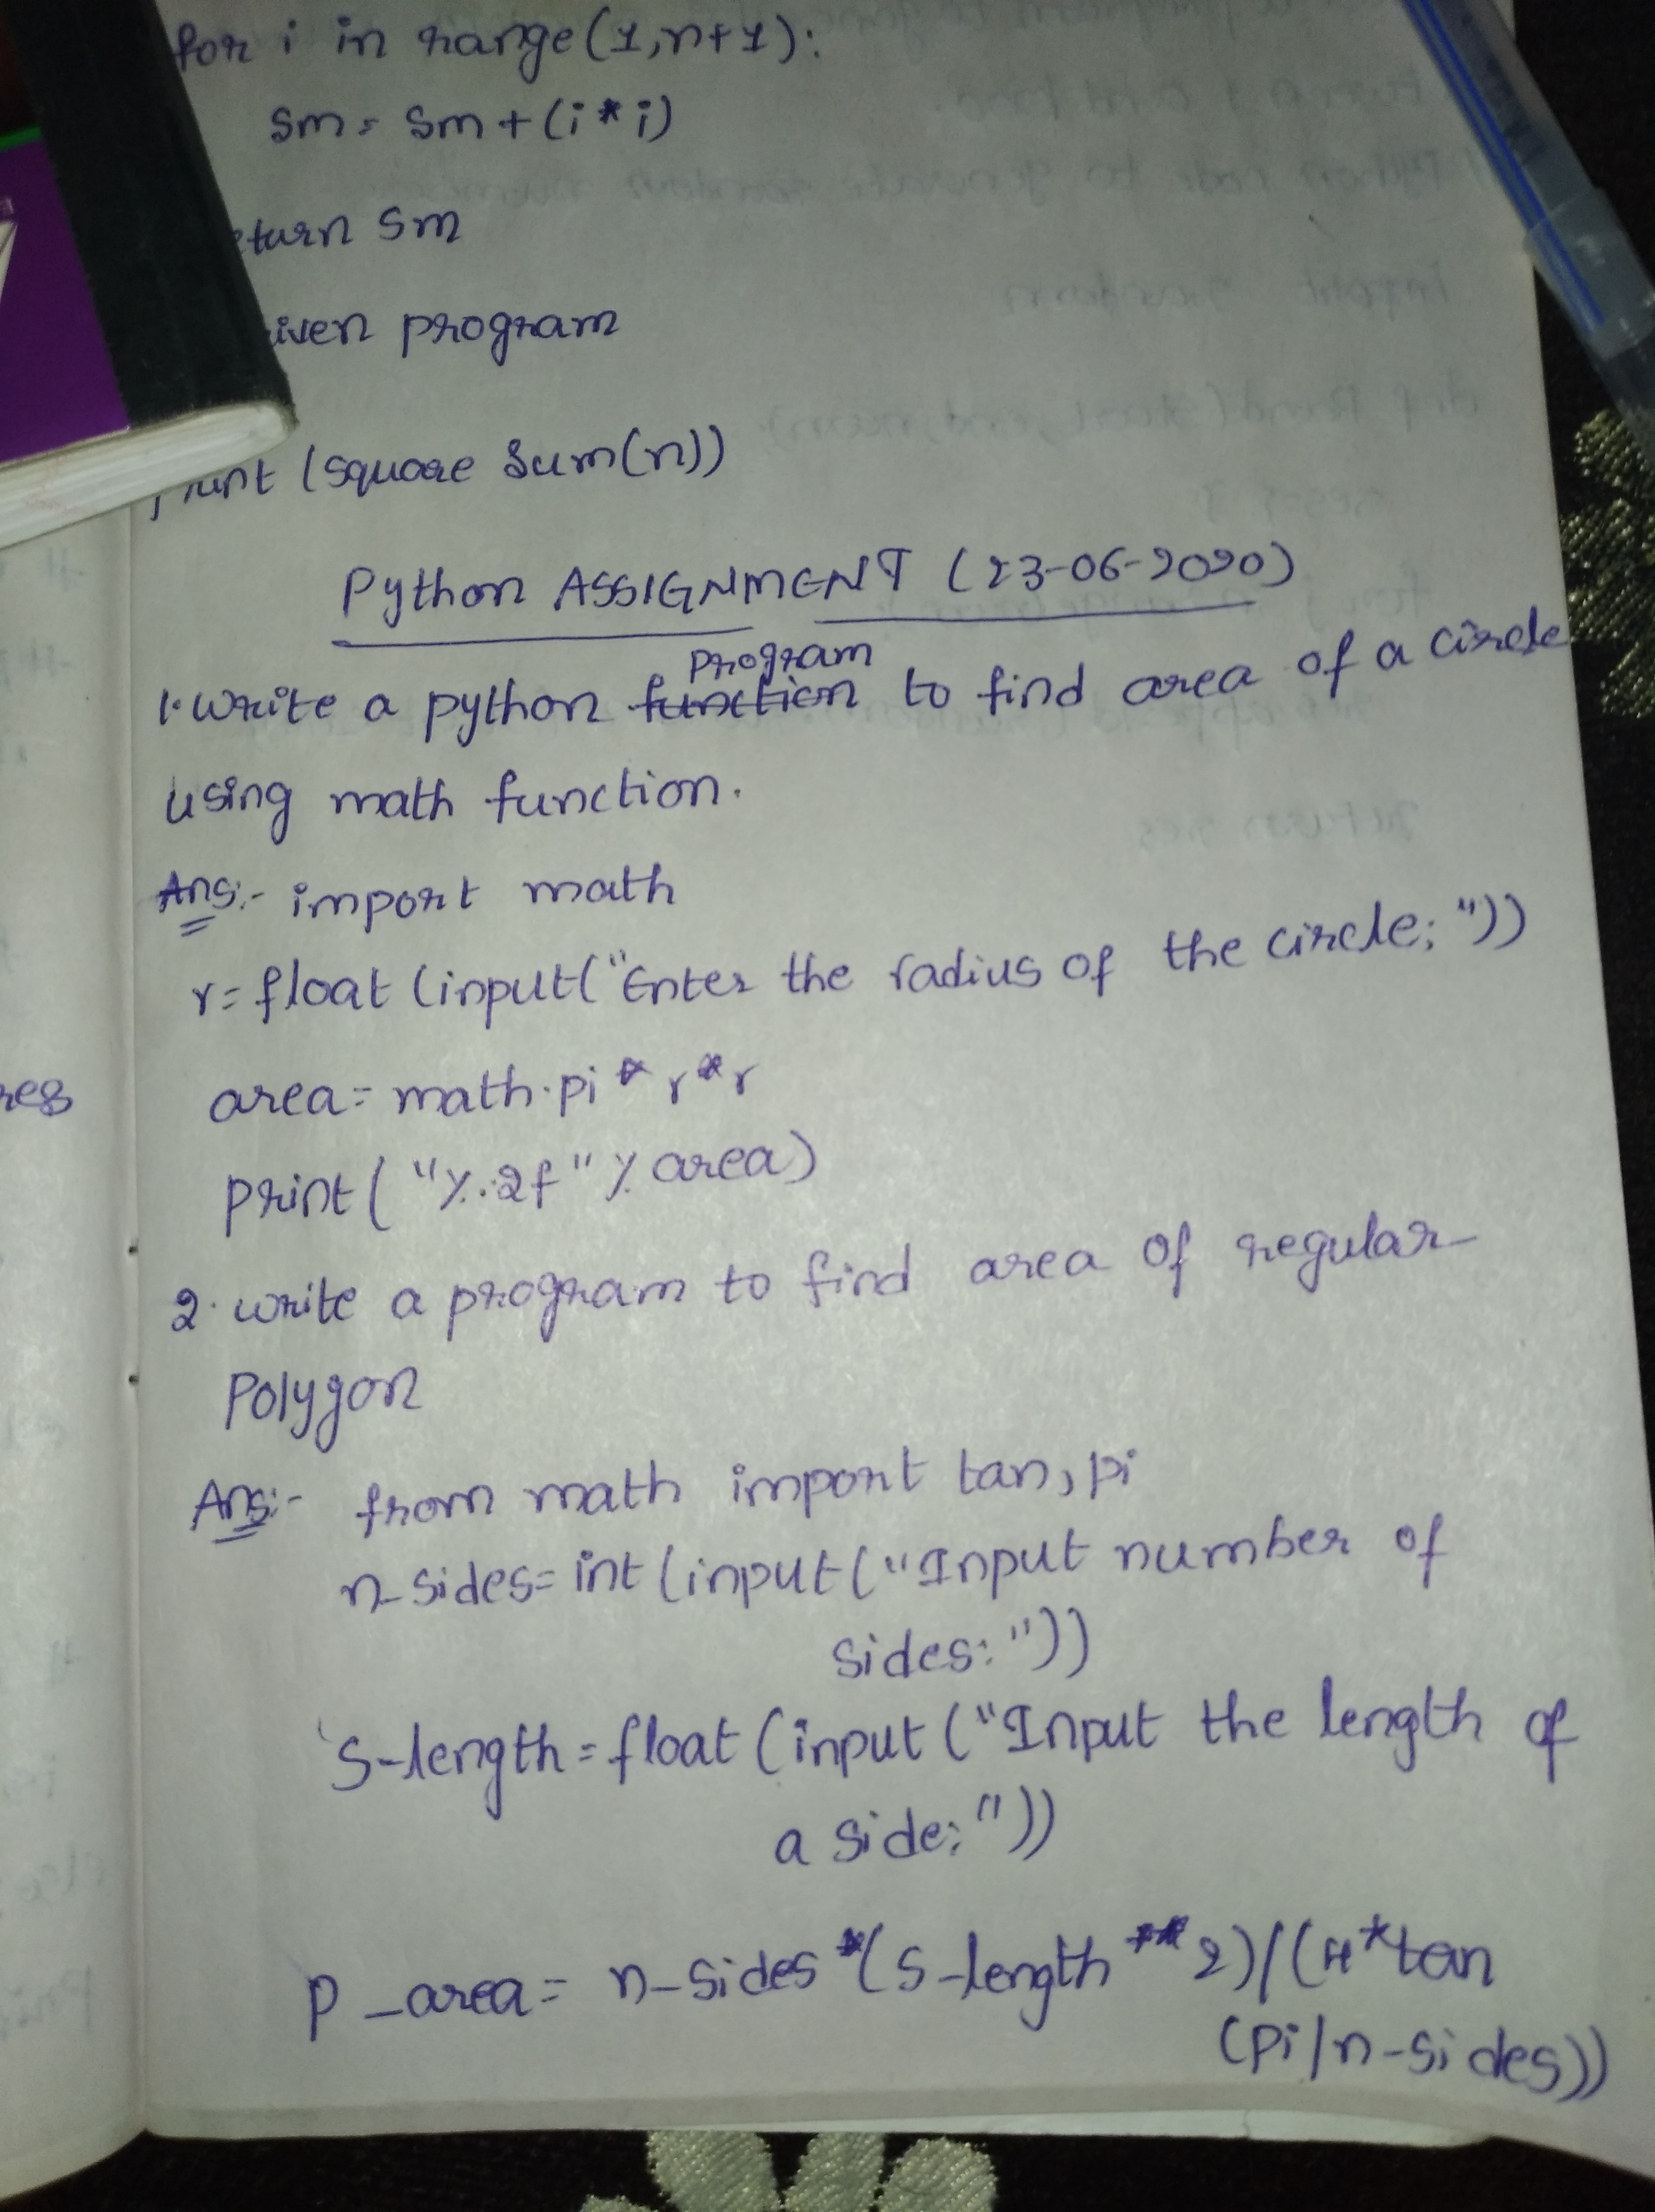 for i in range(1,n+1):
sm= sm+(i*i)
eturn sm
iven program
(square Sum(n))
Python ASSIGNMENT (23-06-2020)
Program
1. Write a python function to find area of a circle
using math function.
Ans:- import math
r= float (input("Enter the radius of the circle; "))
area= math.pi * r*r
print( "%.2f" % area)
2. write a program to find area of regular
Polygon
Ans:- from math import tan, pi
n-sides= int (input("Input number of
sides: "))
S-length = float (input ("Input the length of
a side; "))
P_area= n-sides*(S-length **2)/(4*tan
(Pi/n-sides))